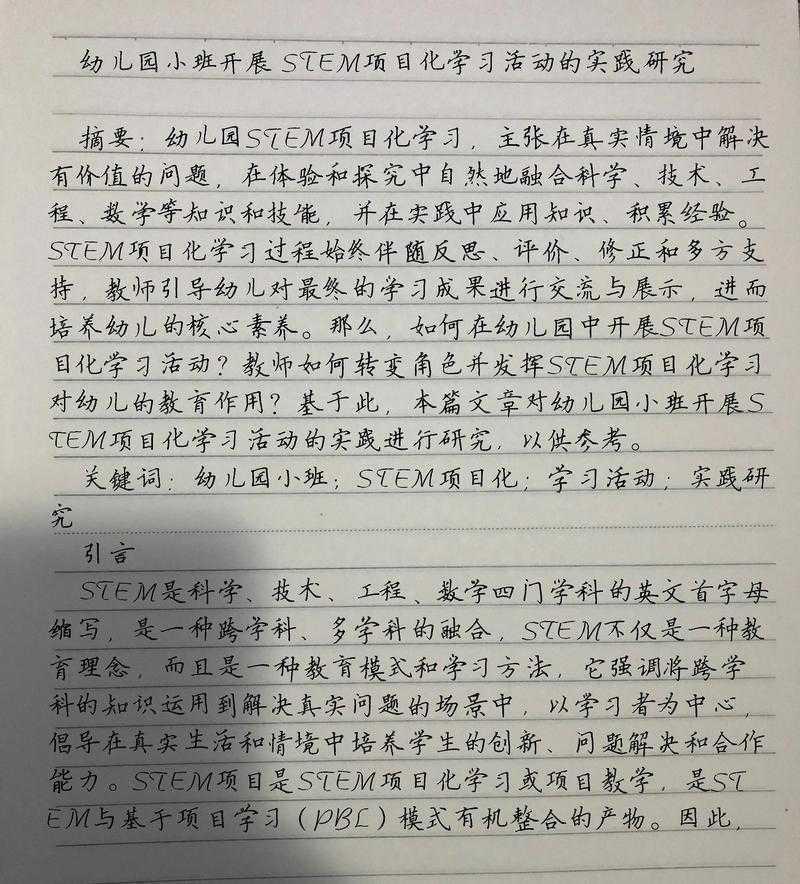 幼儿园小班开展 STEM项目化学习活动的实践研究
摘要：幼儿园STEM项目化学习，主张在真实情境中解决
有价值的问题，在体验和探究中自然地融合科学、技术、工
程、数学等知识和技能，并在实践中应用知识、积累经验。
STEM项目化学习过程始终伴随反思、评价、修正和多方支
持，教师引导幼儿对最终的学习成果进行交流与展示，进而
培养幼儿的核心素养。那么，如何在幼儿园中开展STEM项
目化学习活动？教师如何转变角色并发挥STEM项目化学习
对幼儿的教育作用？基于此，本篇文章对幼儿园小班开展S
TEM项目化学习活动的实践进行研究，以供参考。
关键词：幼儿园小班；STEM项目化；学习活动；实践研
究
引言
STEM是科学、技术、工程、数学四门学科的英文首字母
缩写，是一种跨学科、多学科的融合，STEM不仅是一种教
育理念，而且是一种教育模式和学习方法，它强调将跨学
科的知识运用到解决真实问题的场景中，以学习者为中心，
倡导在真实生活和情境中培养学生的创新、问题解决和合作
能力。STEM项目是STEM项目化学习或项目教学，是ST
EM与基于项目学习（PBL）模式有机整合的产物。因此，